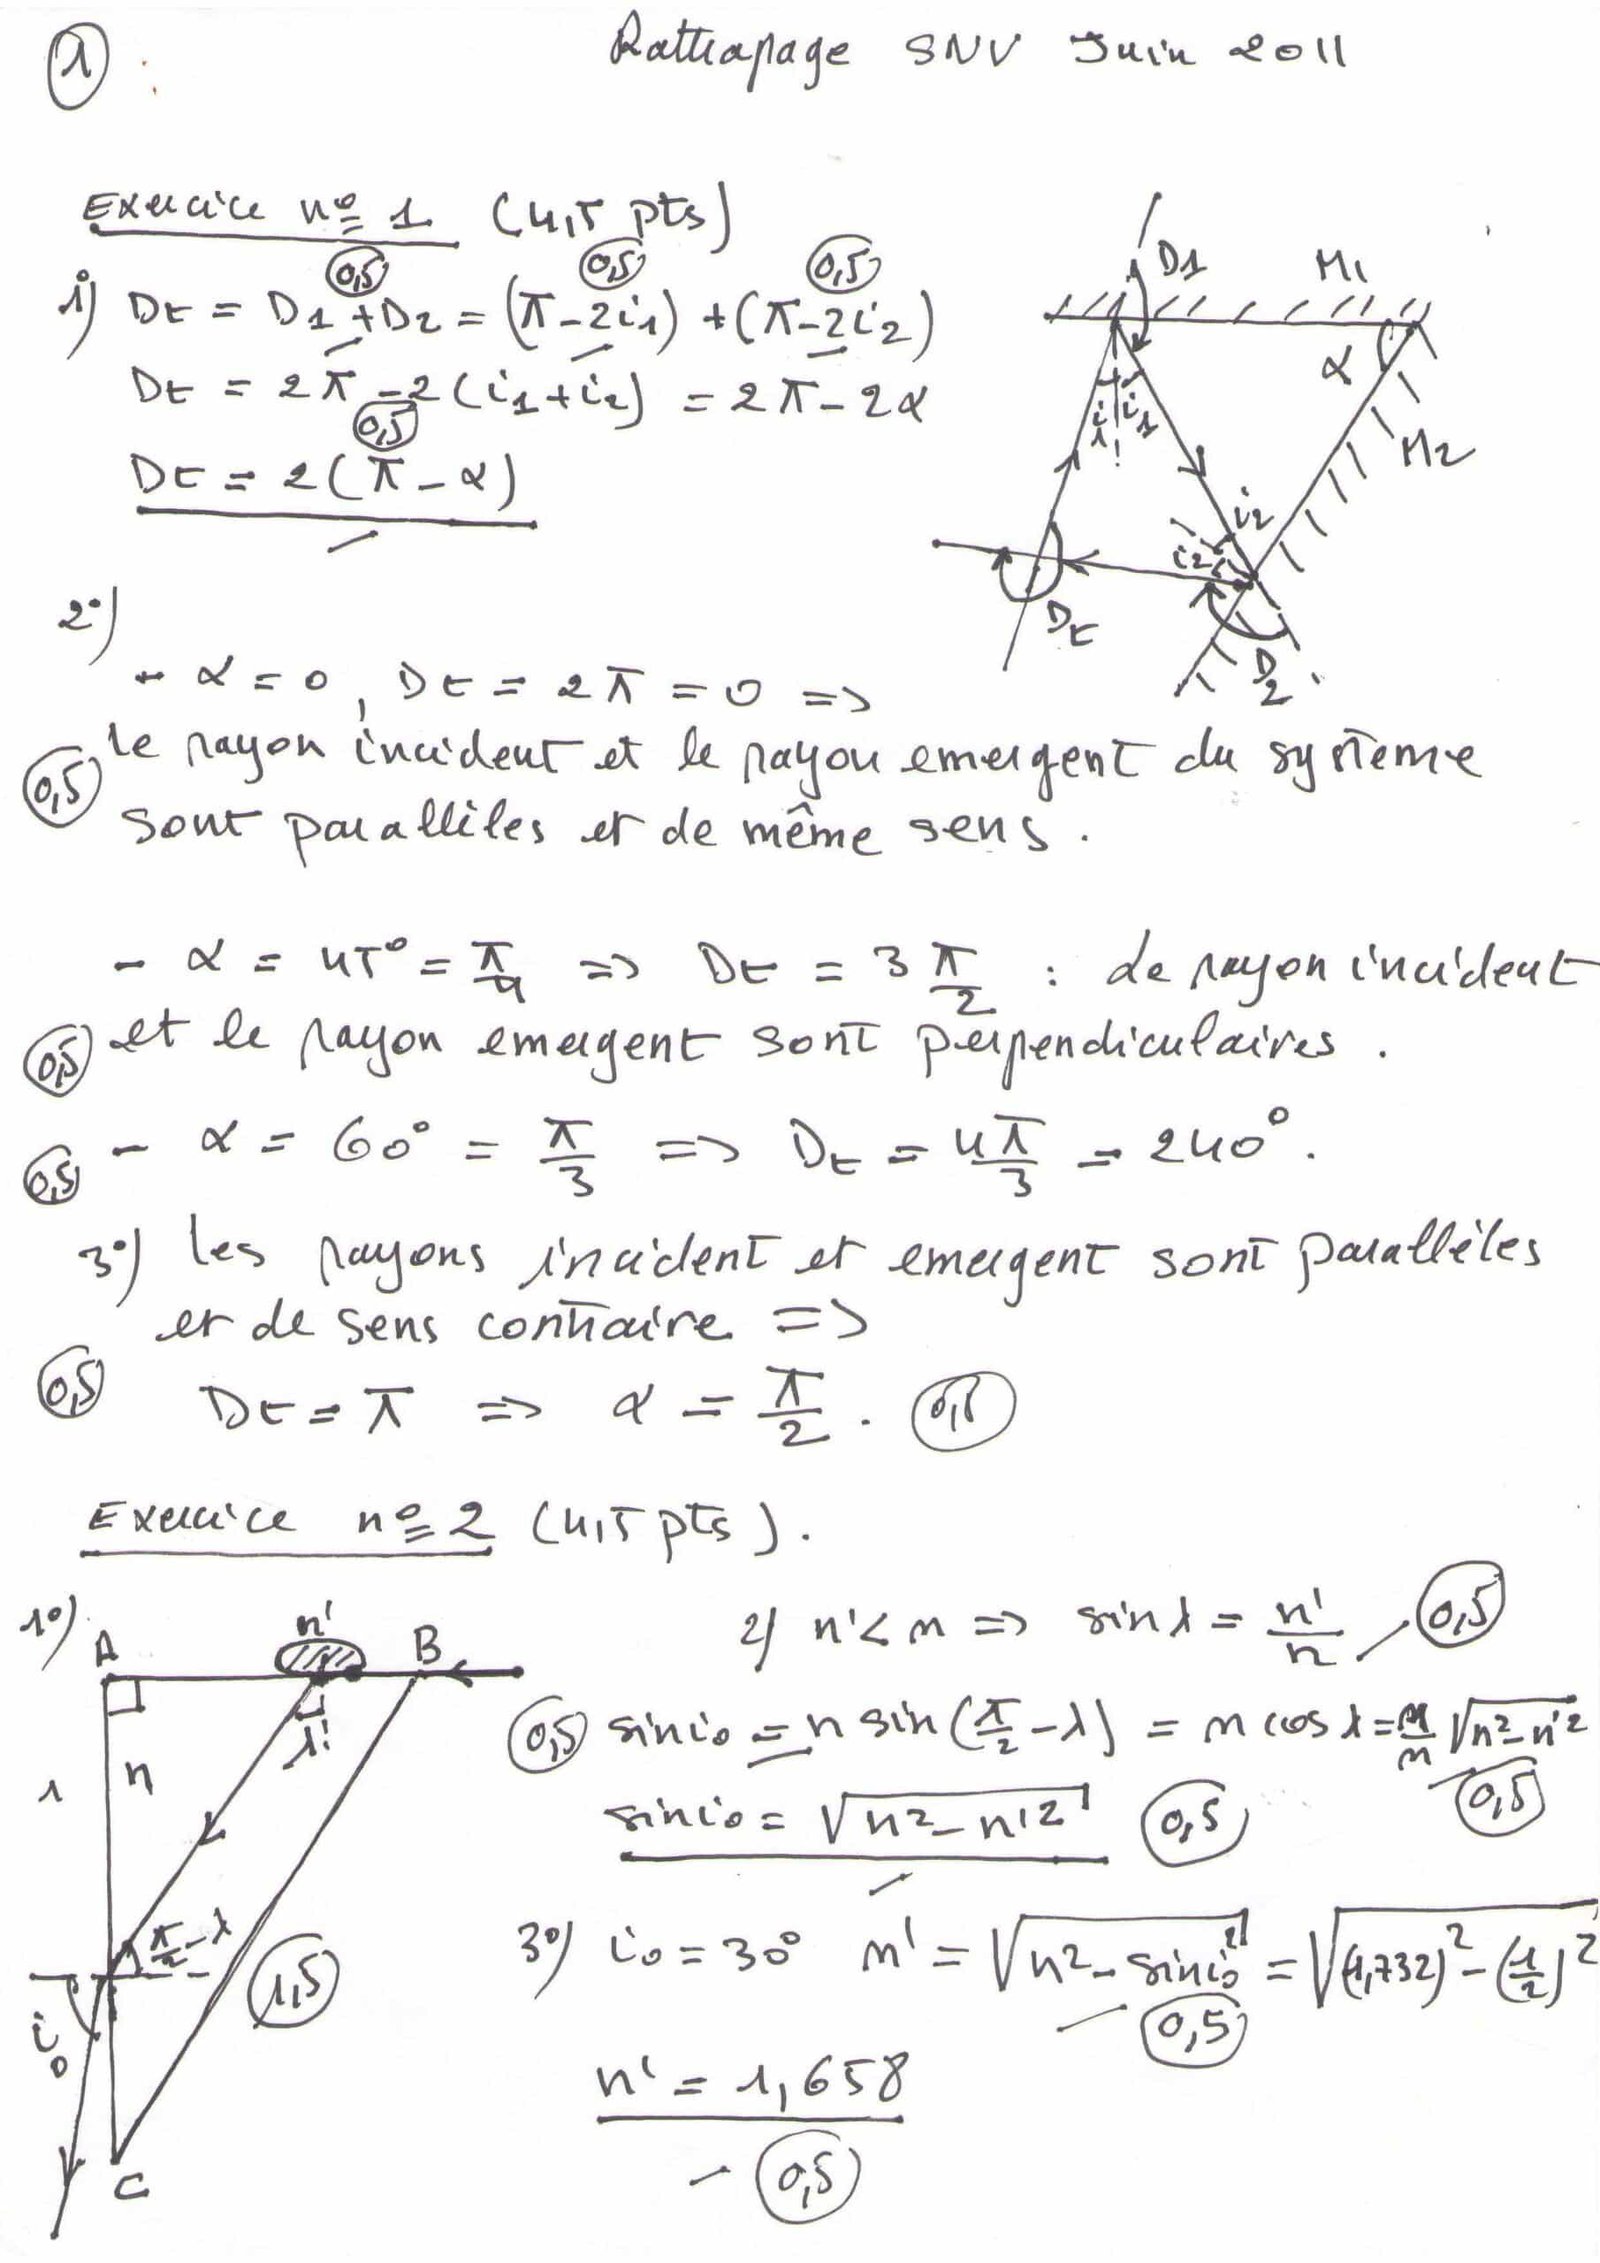 1
Rattrapage SNV Juin 2011
Exercice n° 1 (4,5 pts)
0,5 0,5 0,5
1) Dt = D1 + D2 = (π - 2i1) + (π - 2i2)
Dt = 2π - 2(i1 + i2) = 2π - 2α
0,5
Dt = 2(π - α)
D1 M1
α
i1 i1
M2
i2
i2
Dt
D2
2°)
- α = 0, Dt = 2π = 0 =>
le rayon incident et le rayon emergent du systeme
0,5
sont parallèles et de même sens.
- α = 45° = π/4 => Dt = 3π/2 : le rayon incident
0,5 et le rayon emergent sont perpendiculaires.
0,5 - α = 60° = π/3 => Dt = 4π/3 = 240°.
3°) les rayons incident et emergent sont parallèles
et de sens contraire =>
0,5 Dt = π => α = π/2. 0,5
Exercice n° 2 (4,5 pts).
1°)
A n' B
λ
1 n
π/2 - λ
1,5
i0
C
2) n' < n => sin λ = n'/n 0,5
0,5 sin i0 = n sin(π/2 - λ) = n cos λ = n/n √n² - n'²
0,5
sin i0 = √n² - n'² 0,5
3°) i0 = 30° n' = √n² - sin² i0 = √(1,732)² - (1/2)²
0,5
n' = 1,658
0,5